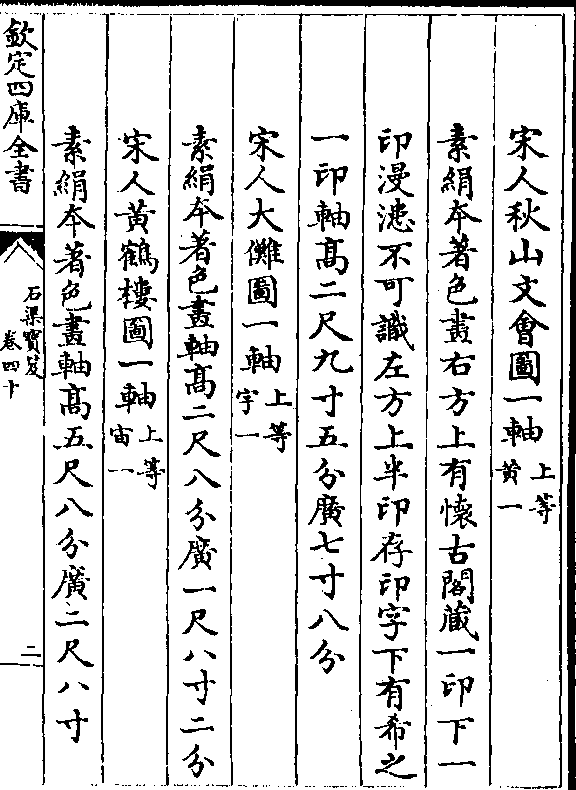 宋人秋山文會圖一軸上等黃一
素絹本著色畫右方上有懷古閣蔵一印下一
印漫漶不可識左方上半印存印字下有希之
一印軸髙二尺九寸五分廣七寸八分
宋人大儺圖一軸上等宇一
素絹本著色畫軸髙二尺八分廣一尺八寸二分
宋人黃鶴樓圖一軸上等宙一
素絹本著色畫軸髙五尺八分廣二尺八寸
欽定四庫全書
石渠寳笈
卷四十
二